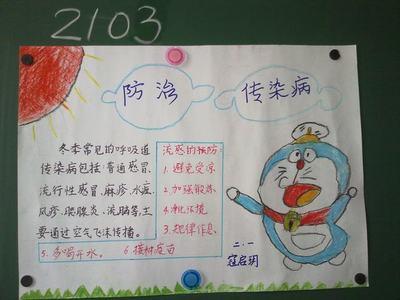 2103
防治
传染病
冬季常见的呼吸道
传染病包括:普通感冒、
流行性感冒、麻疹、水痘、
风疹、腮腺炎、流脑等,主
要通过空气飞沫传播。
流感的预防:
1.避免受凉
2.加强锻炼
4.净化环境
3.规律作息
5.多喝开水。
6.接种疫苗
二.一